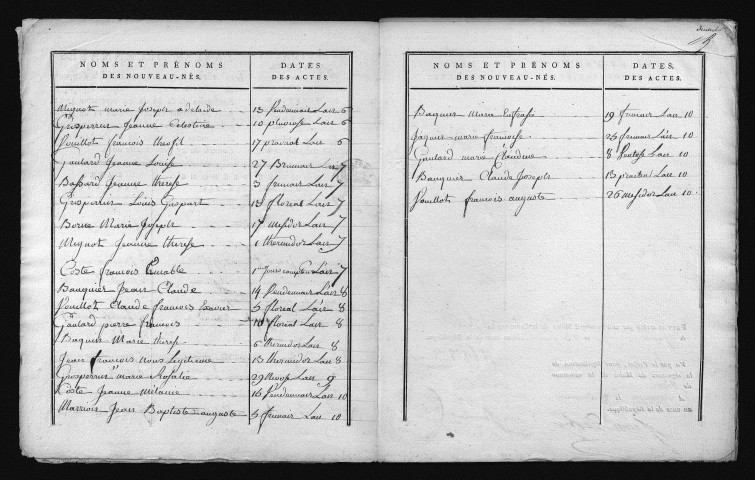 NOMS ET PRÉNOMS DES NOUVEAU-NÉS. DATES DES ACTES.
Mignot marie joseph adelaide 13 Vendemair Lan 6
Grosperrin jeanne Celestine 10 pluviose Lan 6
Pouillot francois theofil 17 prairal Lan 6
Goulard jeanne Louise 27 Brumair Lan 7
Bassard jeanne therese 3 frimair Lan 7
Grosperrin Louis Gaspart 13 floreal Lan 7
Borne Marie Joseph 17 messidor Lan 7
Mignot jeanne therese 1 thermidor Lan 7
Coste francois 1er jours complem Lan 7
Bauquier jean Claude 14 Vendemiair Lan 8
Pouillot Claude francois Exavier 5 floreal Lan 8
Goulard pierre francois 10 floreal Lan 8
Baquier Marie therese 6 thermidor Lan 8
jean francois nous Legitime 13 thermidor Lan 8
Grosperrin marie Rosalie 29 nivose Lan 9
Coste jeanne melanie 15 Vendemair Lan 10
Marrion jean Baptiste auguste 5 frimair Lan 10
NOMS ET PRÉNOMS DES NOUVEAU-NÉS. DATES DES ACTES.
Baquier Marie Eufrasie 19 frimair Lan 10
jaquin marie francoise 25 frimair Lan 10
Goulard marie Claudine 8 Ventose Lan 10
Bauquier Claude joseph 13 prairial Lan 10
Pouillot francois auguste 26 messidor Lan 10